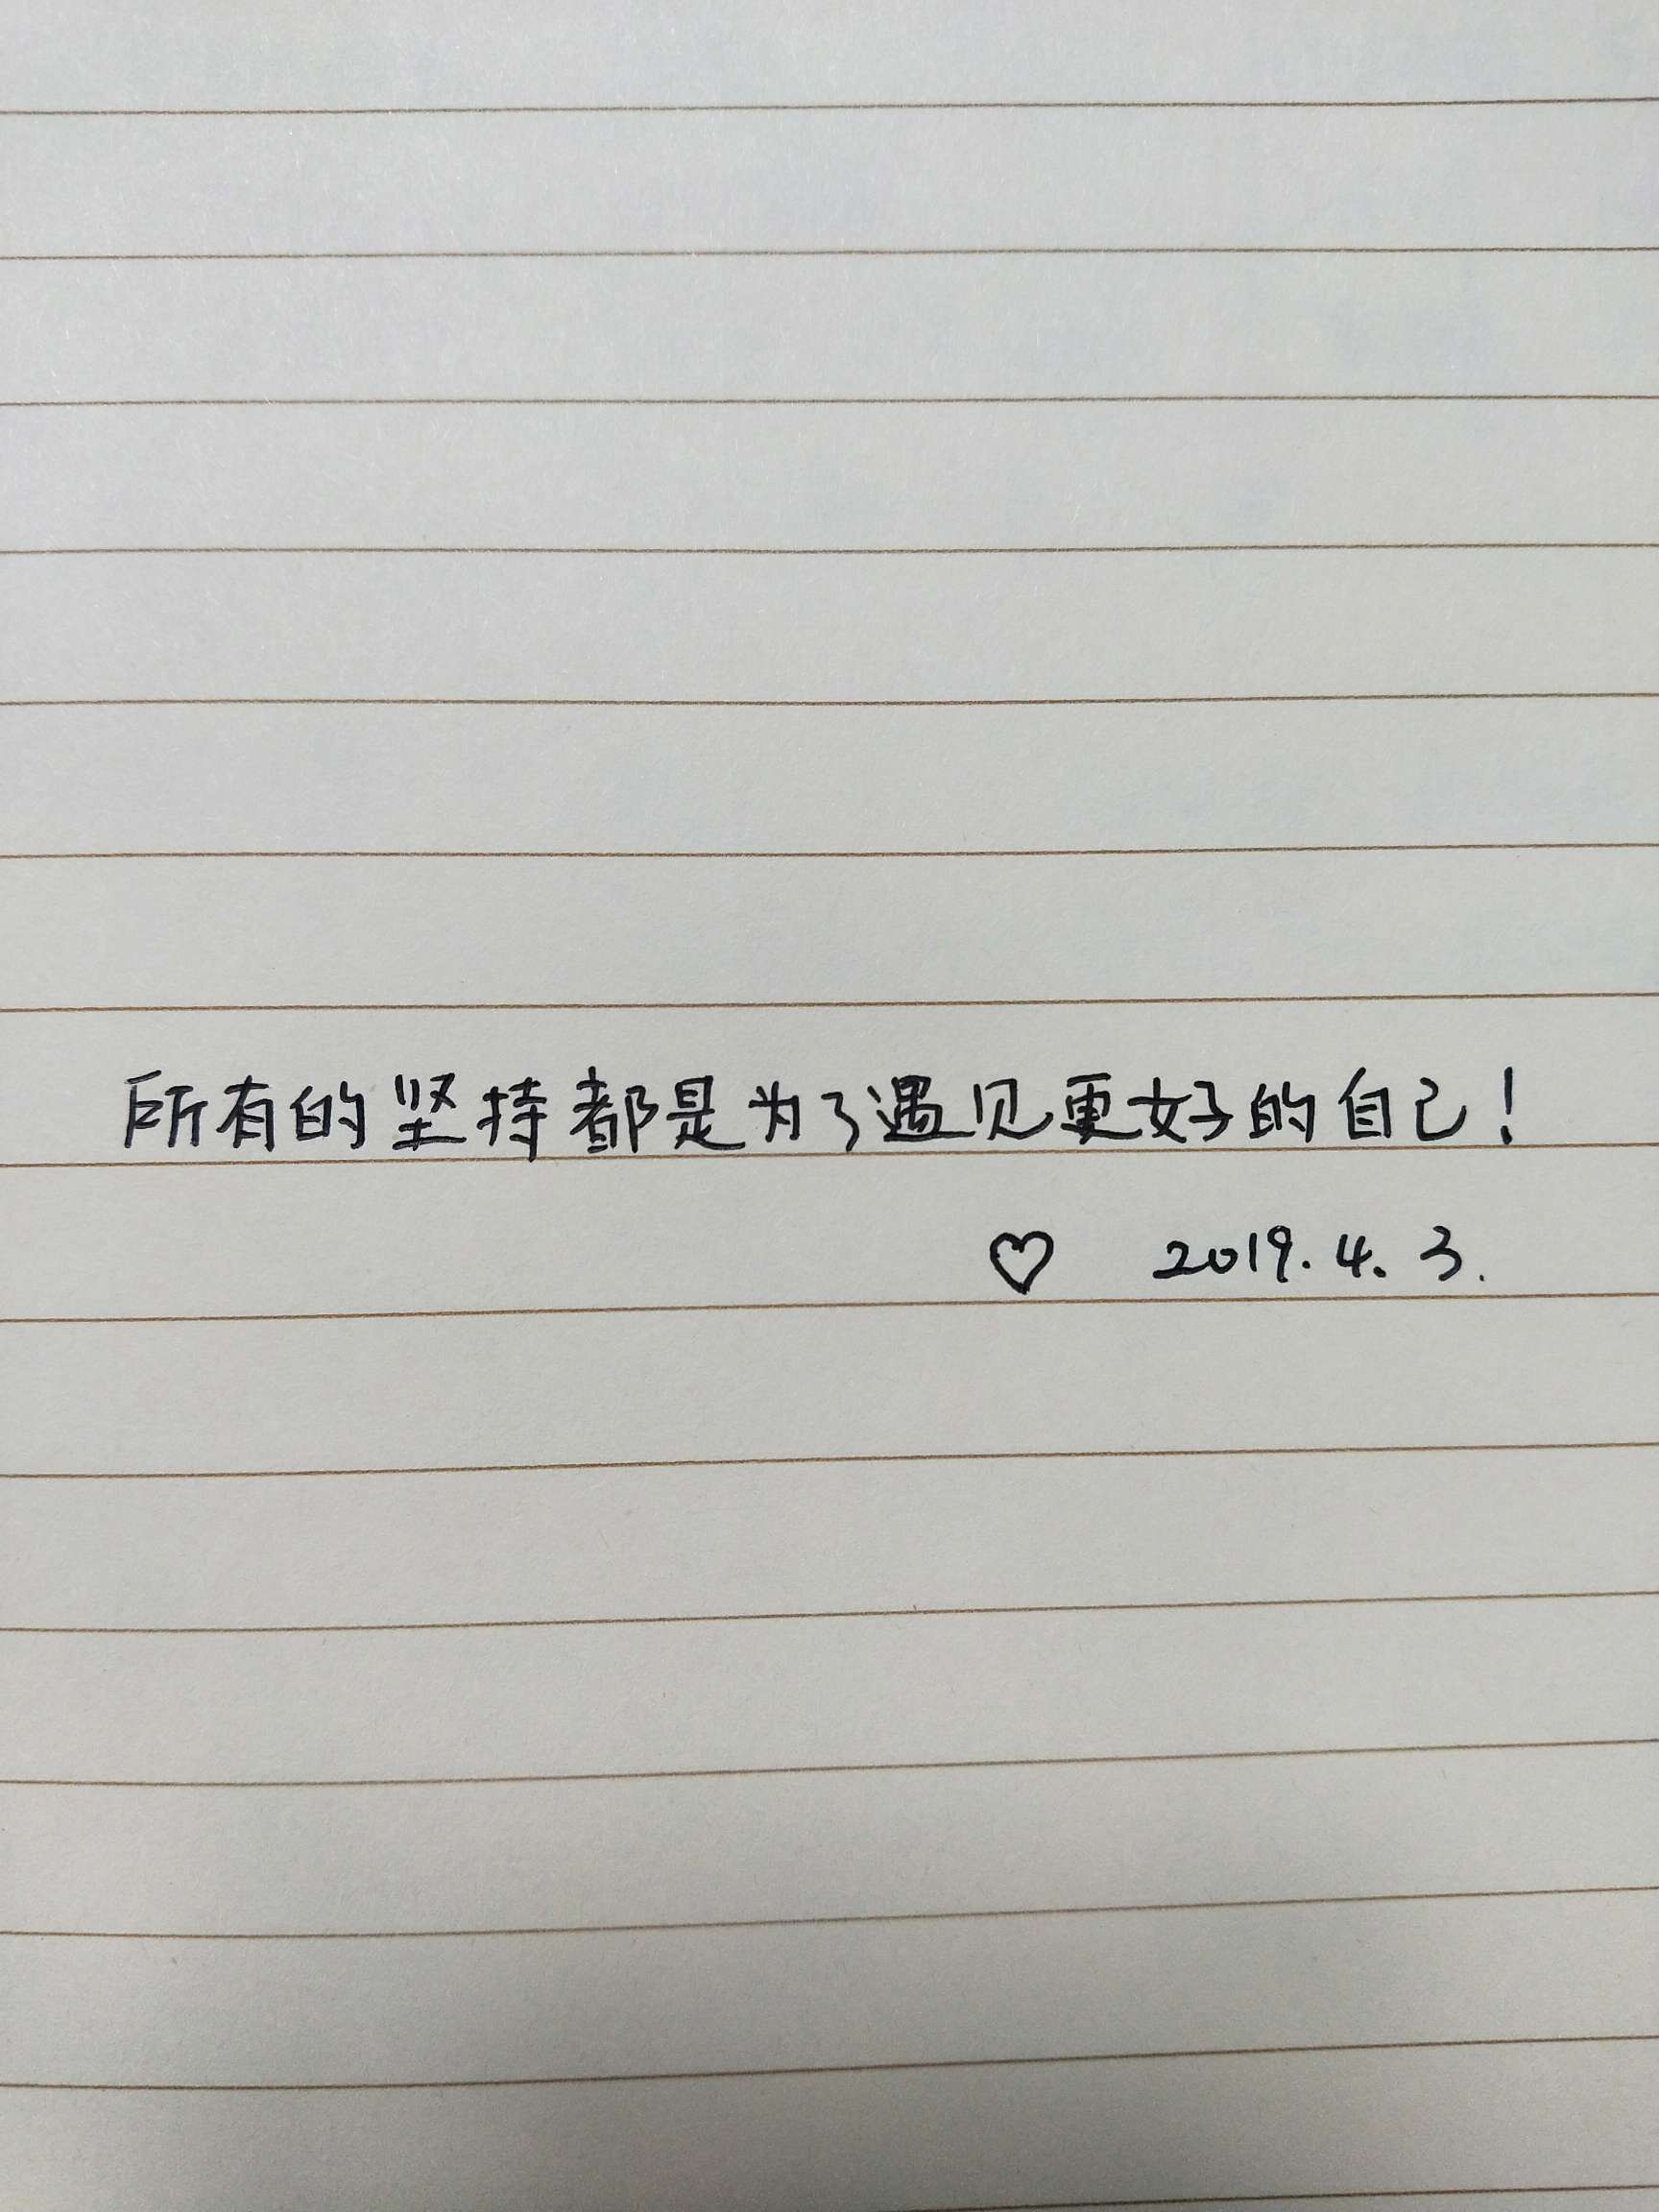 所有的坚持都是为了遇见更好的自己！
♡ 2019.4.3.